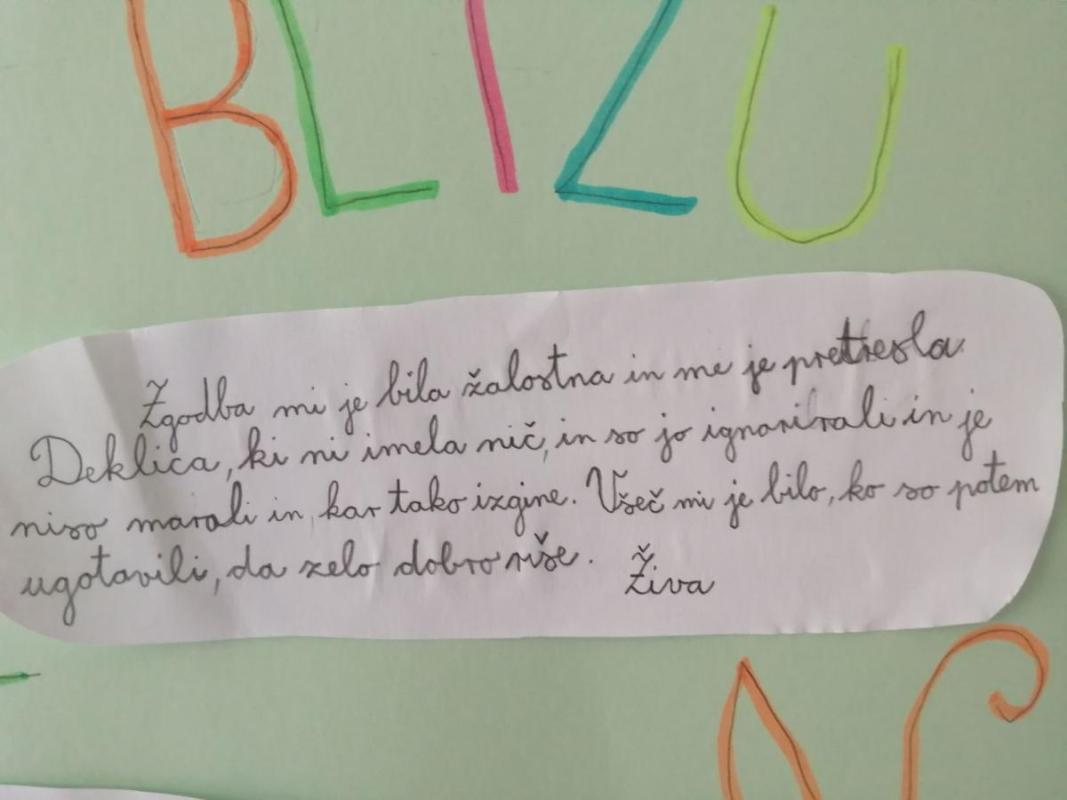 BLIZU
Zgodba mi je bila žalostna in me je pretresla.
Deklica, ki ni imela nič, in so jo ignorirali in je
niso marali in, kar tako izgine. Všeč mi je bilo, ko so potem
ugotovili, da zelo dobro riše. Živa